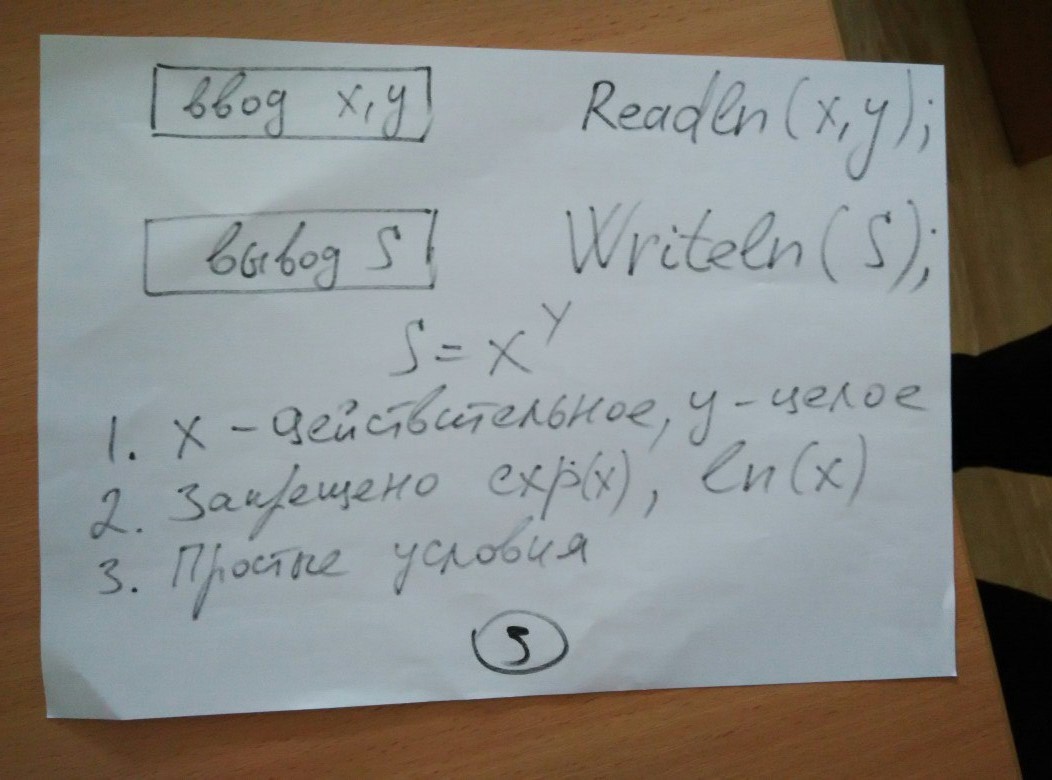 ввод x,y Readln(x,y);
вывод S Writeln(S);
S=x^y
1. x – действительное, y – целое
2. Запрещено exp(x), ln(x)
3. Простые условия
5